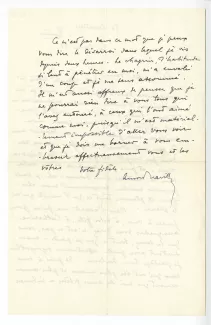 Ce n'est pas dans ce mot que je peux
vous dire le désarroi dans lequel je vis
depuis deux heures. Le chagrin, l'habitude
si lent à pénétrer en moi, m'a envahi
d'un coup et je me sens
Il m'est aussi affreux de penser que je
ne pourrai rien dire à vous tous qui
l'avez entouré, à ceux qui l'ont aimé
comme moi, puisqu'il m'est matériel-
lement impossible d'aller vous voir
et que je dois me borner à vous em-
brasser affectueusement vous et les
vôtres
Votre fidèle